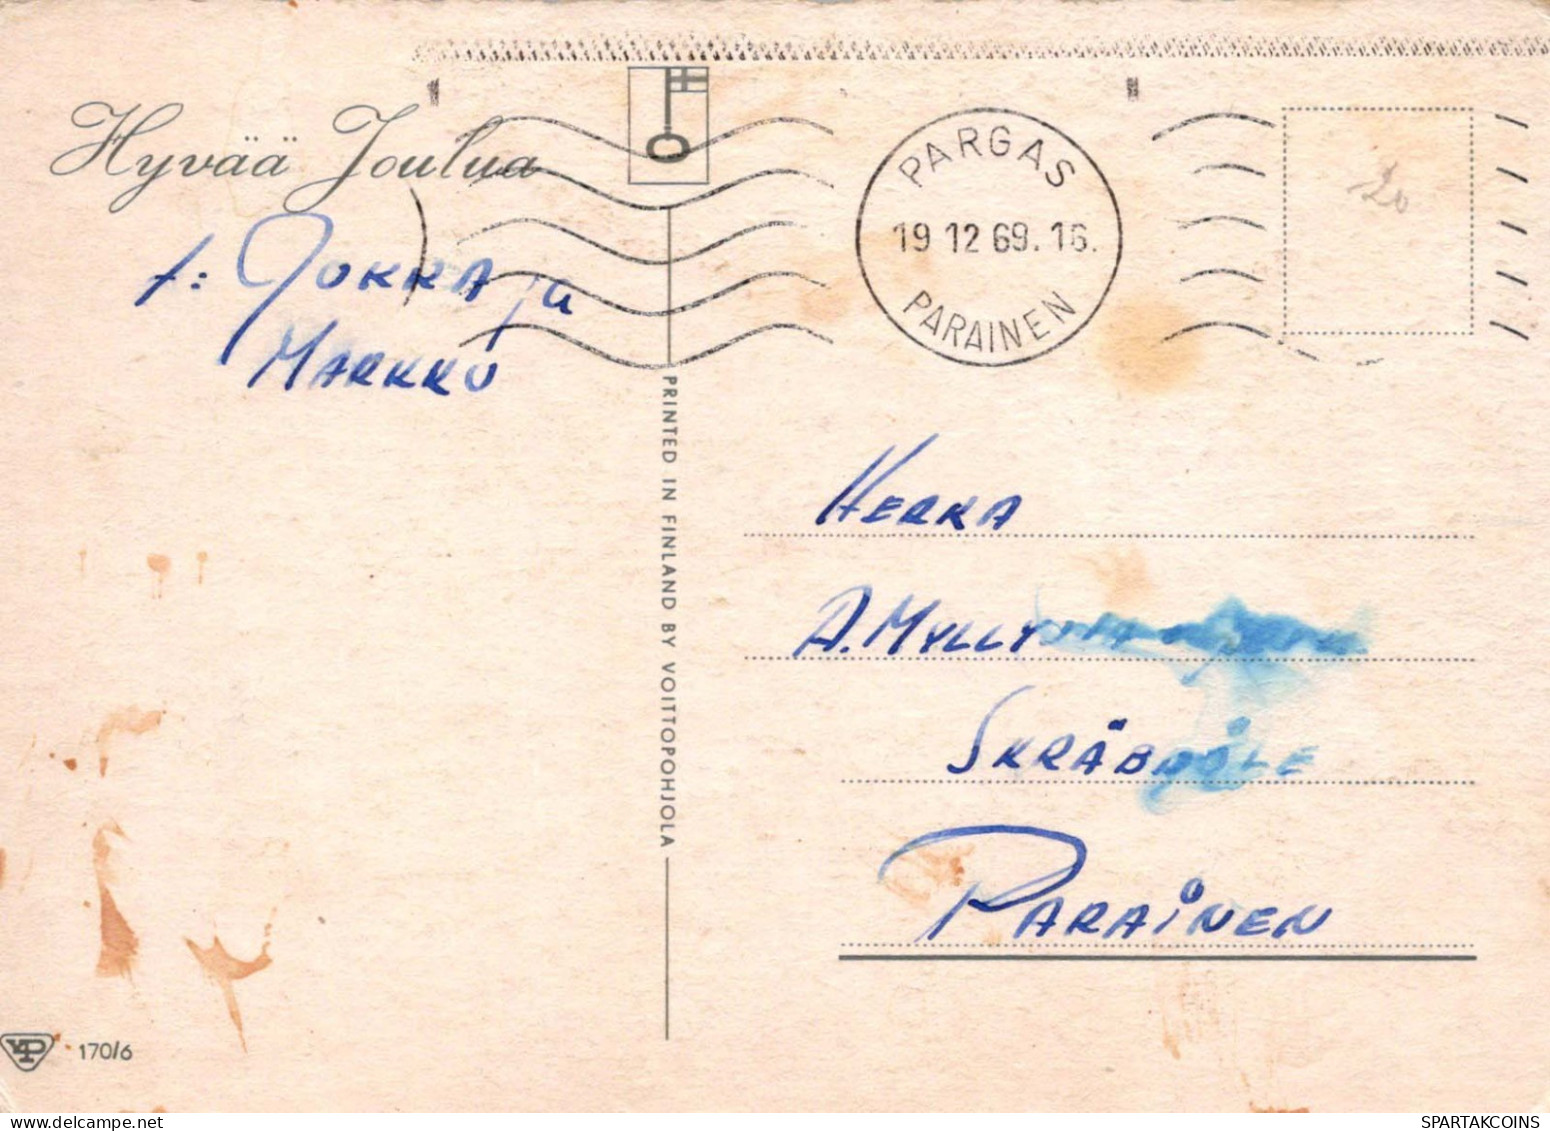 Hyvää Joulua
t: Jukka ja
Markku
PARGAS
19 12 69. 16.
PARAINEN
20
PRINTED IN FINLAND BY VOITTOPOHJOLA
HERRA
A. MYLLY
SKRÄBBÖLE
PARAINEN
VP 170/6
SPARTAKCOINS